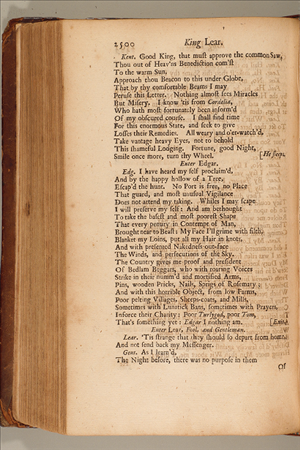 2500 King Lear.
Kent. Good King, that must approve the common Saw,
Thou out of Heav'ns Benediction com'st
To the warm Sun.
Approach thou Beacon to this under Globe,
That by thy comfortable Beams I may
Peruse this Letter. Nothing almost sees Miracles
But Misery. I know 'tis from Cordelia,
Who hath most fortunately been inform'd
Of my obscured course. I shall find time
For this enormous State, and seek to give
Losses their Remedies. All weary and o'erwatch'd,
Take vantage heavy Eyes, not to behold
This shameful Lodging. Fortune, good Night,
Smile once more, turn thy Wheel. [He sleeps.
Enter Edgar.
Edg. I have heard my self proclaim'd,
And by the happy hollow of a Tree,
Escap'd the hunt. No Port is free, no Place
That guard, and most unusual Vigilance
Does not attend my taking. Whiles I may scape
I will preserve my self: And am bethought
To take the basest and most poorest Shape
That every penury in Contempt of Man,
Brought near to Beast: My Face I'll grime with filth,
Blanket my Loins, put all my Hair in knots,
And with presented Nakedness out-face
The Winds, and persecutions of the Sky.
The Country gives me proof and president
Of Bedlam Beggars, who with roaring Voices
Strike in their numm'd and mortified Arms,
Pins, wooden Pricks, Nails, Sprigs of Rosemary:
And with this horrible Object, from low Farms,
Poor pelting Villages, Sheeps-coats, and Mills,
Sometimes with Lunatick Bans, sometimes with Prayers,
Inforce their Charity: Poor Turlygod, poor Tom,
That's something yet: Edgar I nothing am. [Exit.
Enter Lear, Fool, and Gentleman.
Lear. 'Tis strange that they should so depart from home,
And not send back my Messenger.
Gent. As I learn'd,
The Night before, there was no purpose in them
Of